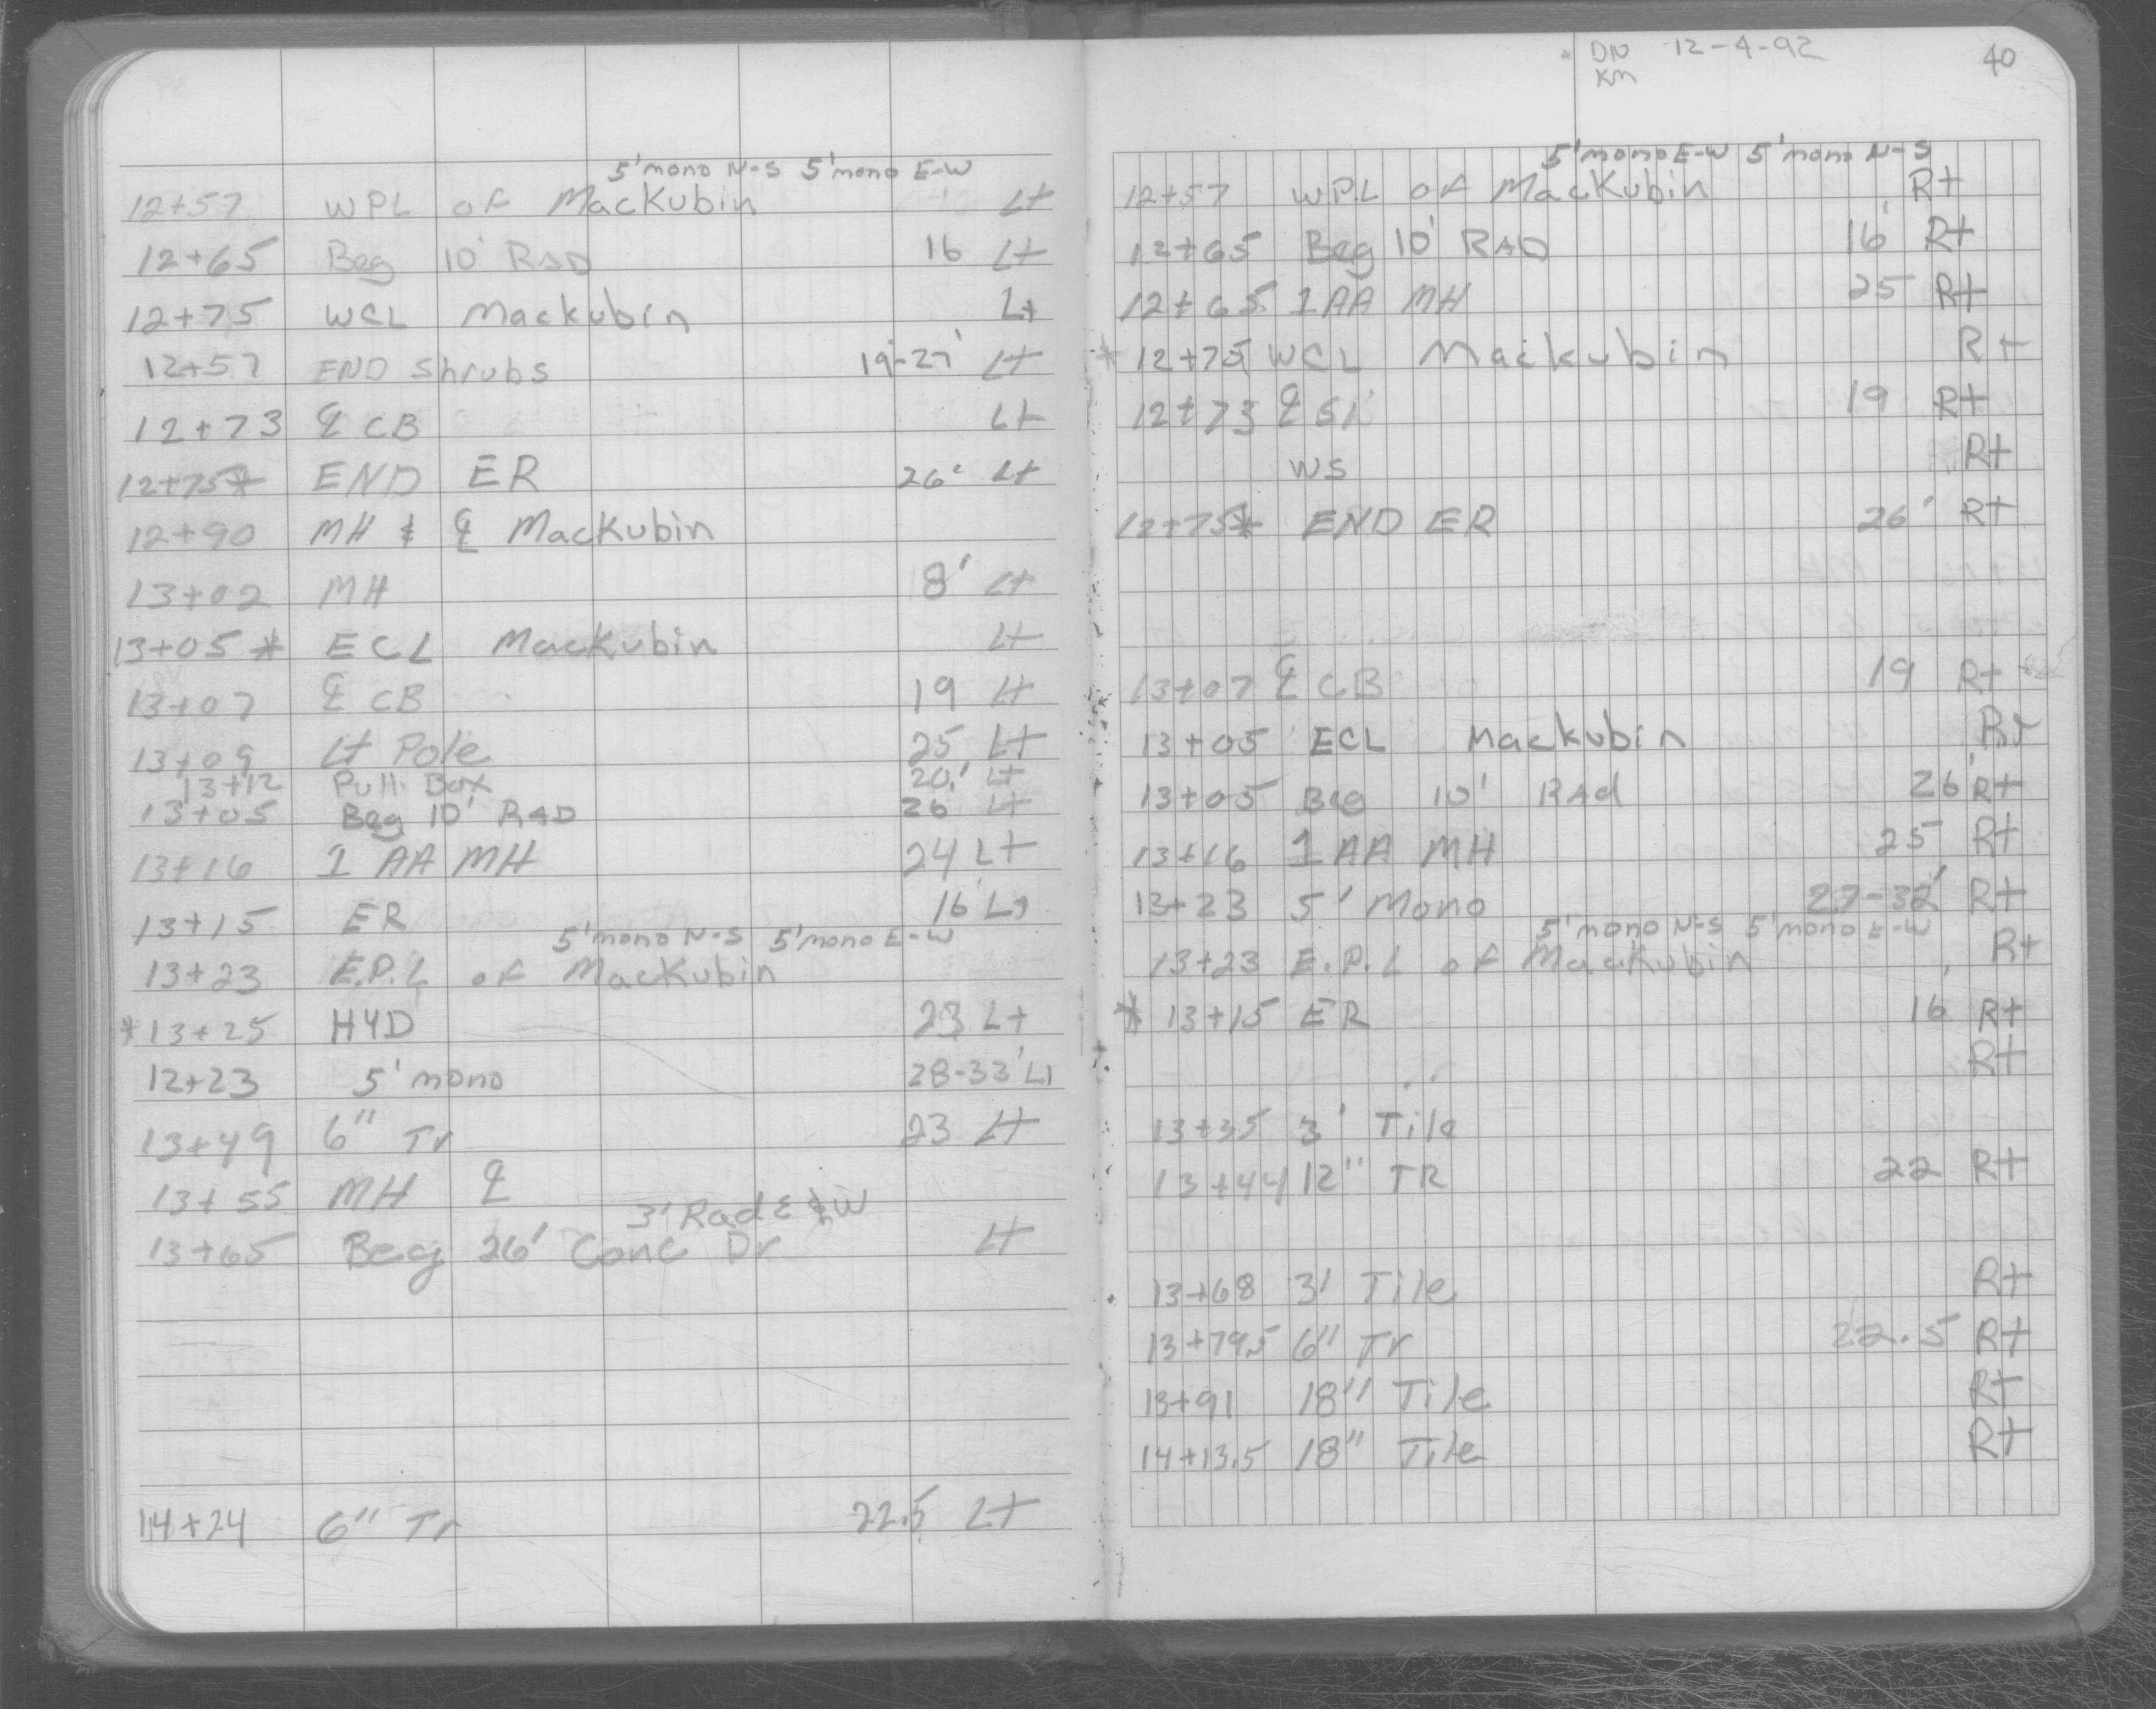 5'mono N-S 5'mono E-W
12+57 WPL of Mackubin Lt
12+65 Beg 10' RAD 16 Lt
12+75 WCL Mackubin Lt
12+57 END Shrubs 19-27' Lt
12+73 ℄ CB Lt
12+75* END ER 26' Lt
12+90 MH & ℄ Mackubin
13+02 MH 8' Lt
13+05 * ECL Mackubin Lt
13+07 ℄ CB 19 Lt
13+09 Lt Pole 25 Lt
13+12 Pull Box 20' Lt
13+05 Beg 10' RAD 26 Lt
13+16 1 AA MH 24 Lt
13+15 ER 16' Lt
5'mono N-S 5'mono E-W
13+23 E.P.L of Mackubin
*13+25 HYD 23 Lt
12+23 5' mono 28-33' Lt
13+49 6" Tr 23 Lt
13+55 MH ℄
3' Rad E & W
13+65 Beg 26' Conc Dr Lt
14+24 6" Tr 22.5 Lt
DN 12-4-92 40
KM
5'mono E-W 5'mono N-S
12+57 W.P.L of Mackubin Rt
12+65 Beg 10' RAD 16' Rt
12+65 1 AA MH 25 Rt
* 12+75 WCL Mackubin Rt
12+73 ℄ 19 Rt
WS Rt
12+75* END ER 26' Rt
13+07 ℄ CB 19 Rt
13+05 ECL Mackubin Rt
13+05 Beg 10' RAd 26' Rt
13+16 1 AA MH 25 Rt
13+23 5' Mono 27-32' Rt
5'mono N-S 5'mono E-W
13+23 E.P.L of Mackubin Rt
* 13+15 ER 16 Rt
Rt
13+35 3' Tile
13+44 12" TR 22 Rt
13+68 3' Tile Rt
13+79.5 6" Tr 22.5 Rt
13+91 18" Tile Rt
14+13.5 18" Tile Rt